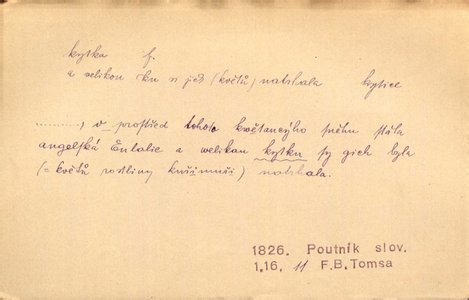 kytka f.
a velikou ku si jich (květů) natrhala kytice
..........., v prostřed tohoto květancýho sněhu stála
angelská Eulalie a welikau kytku sy gich byla
(= květů rostliny) natrhala.
1826. Poutník slov.
1,16. 11 F.B.Tomsa